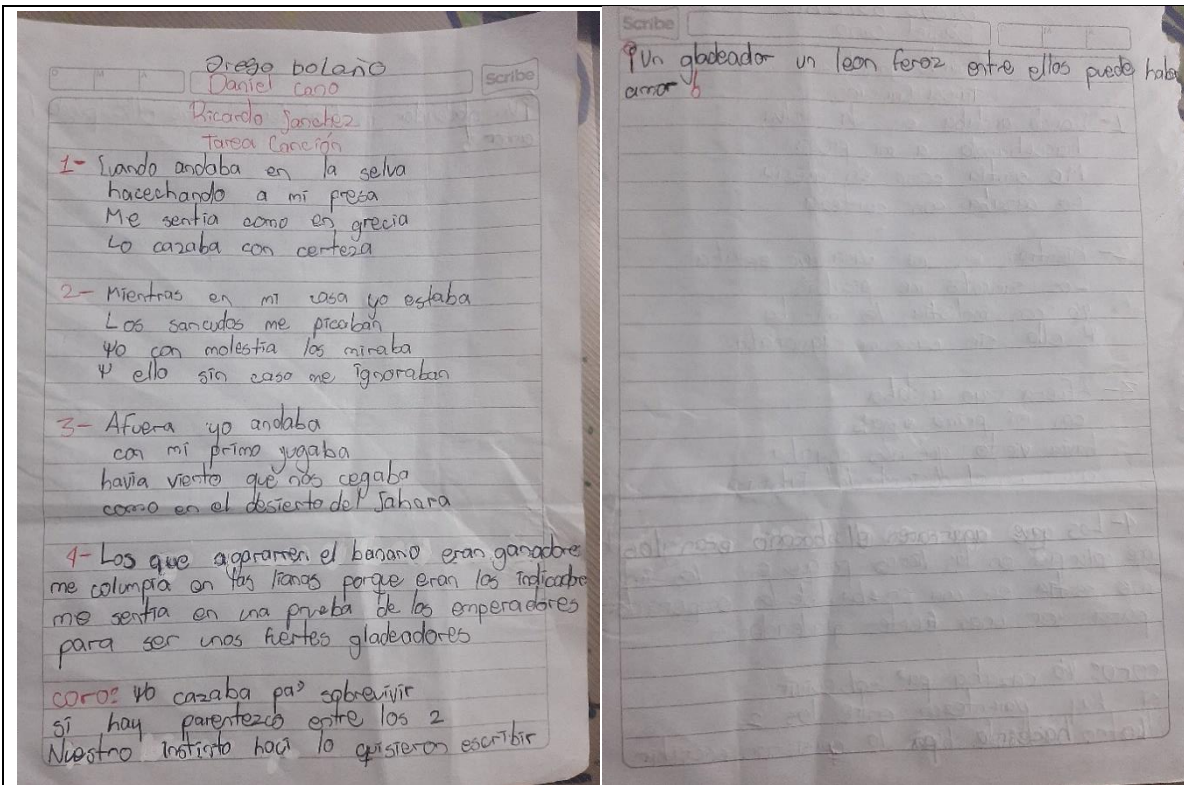 Diego bolaño
Daniel Cano
Scribe
Ricardo Sanchez
Tarea Canción
1- Cuando andaba en la selva
hacechando a mi presa
Me sentia como en grecia
Lo cazaba con certeza
2- Mientras en mi casa yo estaba
Los sancudos me picaban
Yo con molestia los miraba
Y ello sin caso me ignoraban
3- Afuera yo andaba
con mi primo yugaba
havia viento que nos cegaba
como en el desierto del Sahara
4- Los que agararren el banano eran ganadore
me columpia en las lianas porque eran los indicadore
me sentia en una prueba de los emperadores
para ser unos fuertes gladeadores
coro: Yo cazaba pa' sobrevivir
si hay parentezco entre los 2
Nuestro instinto haci lo quisieron escribir
Scribe
¿Un gladeador un leon feroz entre ellos puede habe
amor?